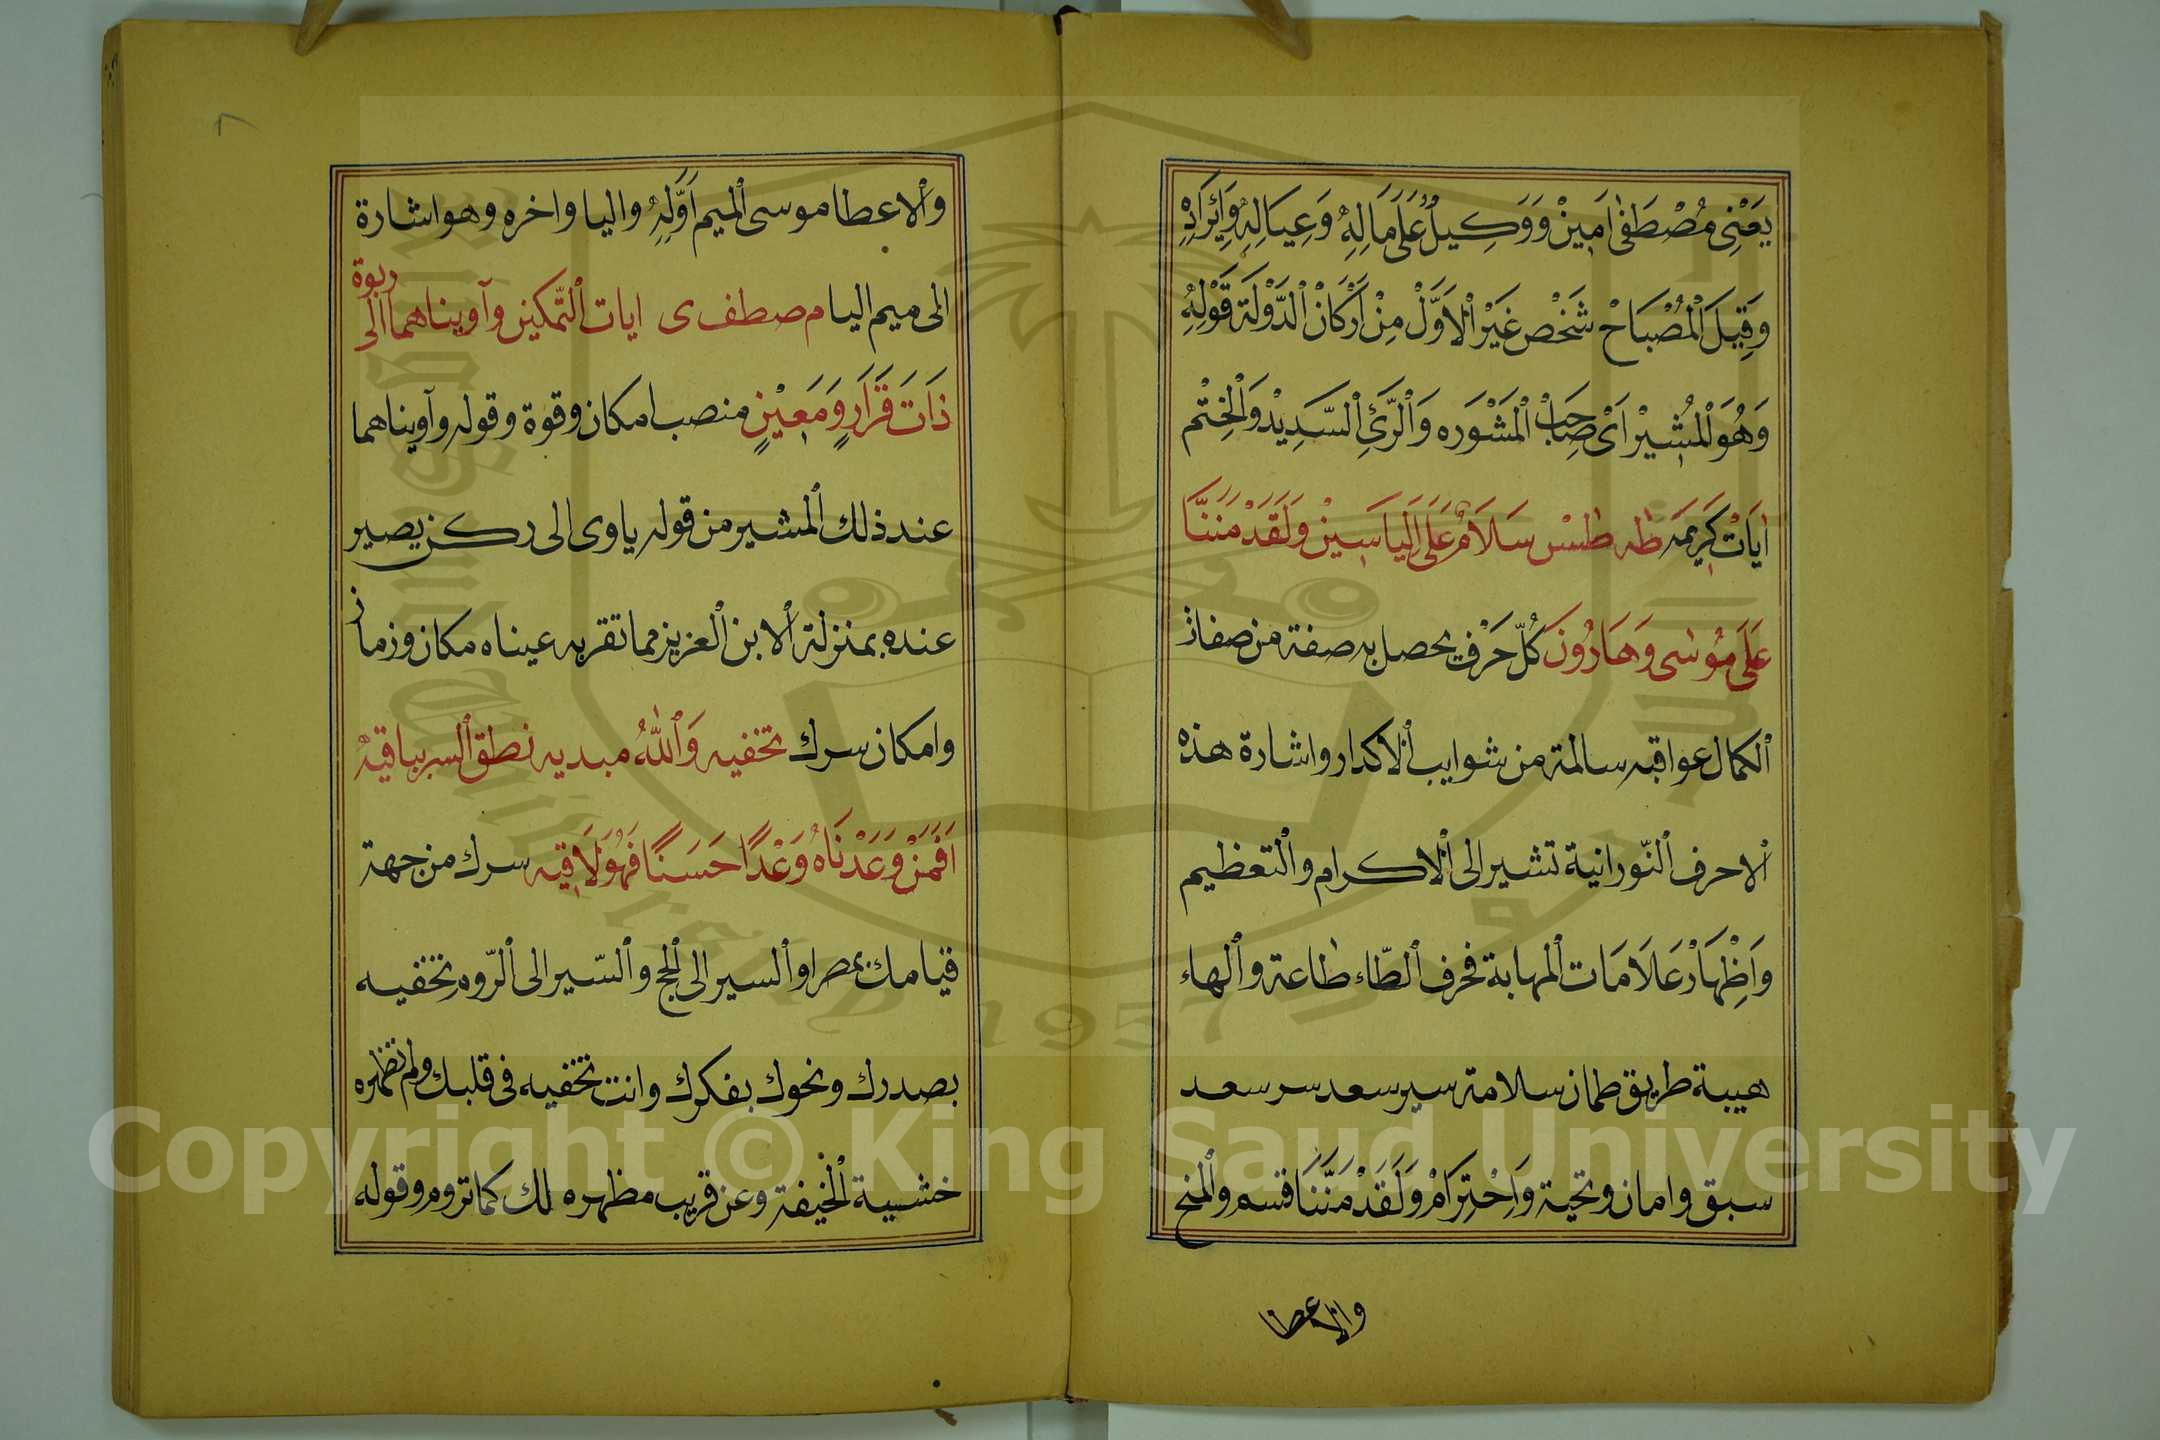 يَعْنِى مُصْطَفٰى اَمِينْ وَوَكِيلْ عَلَى مَالِهِ وَعِيَالِهِ وَاِيْرَادِهْ
وَقِيلَ الْمُصْبَاحْ شَخْص غَيْرْ الْاَوَّلْ مِنْ اَرْكَانْ الدَّوْلَة قَوْلِهِ
وَهُوَ الْمُشِيرْ اَىْ صَاحِبْ الْمَشْوَره وَالرَّئِ السَّدِيدْ وَالْخِتْم
اٰيَاتْ كَرِيمَه طٰه طٰسٓ سَلَامٌ عَلَى اِلْيَاسِينْ وَلَقَدْ مَنَنَّا
عَلَى مُوسٰى وَهَارُونَ كُلّ حَرْف يحصل به صفة من صفات
الكمال عواقبه سالمة من شوايب الاكدار واشارة هذه
الاحرف النّورانية تشير الى الاكرام والتعظيم
وَاِظْهَارْ عَلَامَات المهابة فحرف الطّاء طاعة والهاء
هيبة طريق طمان سلامة سير سعد سر سعد
سبق وامان وتحية وَاحْتِرَامْ وَلَقَدْ مَنَّنَا قسم والمنح
والاعطا
والاعطا موسى الميم اَوَّلِهِ واليا واخره وهو اشارة
الى ميم اليا م ص ط ف ى ايات التّمكين وآويناهما الى ربوة
ذَاتَ قَرَارٍ وَمَعِيْنٍ منصب امكان وقوة وقوله وآويناهما
عند ذلك المشير من قوله ياوى الى ركن يصير
عنده بمنزلة الابن العزيز مما تقر به عيناه مكان وزمان
وامكان سرك تخفيه وَاللّٰهُ مبديه نطق السر بباقيه
اَفَمَنْ وَعَدْنَاهُ وَعْدًا حَسَنًا فَهُوَ لَاقِيه سرك من جهة
قيامك بمصر او السير الى الحج والسّير الى الرّوم تخفيه
بصدرك ونحوك بفكرك وانت تخفيه فى قلبك ولم تظهره
خشية الخيفة وعن قريب مظهره لك كما تروم وقوله
Copyright © King Saud University
1957